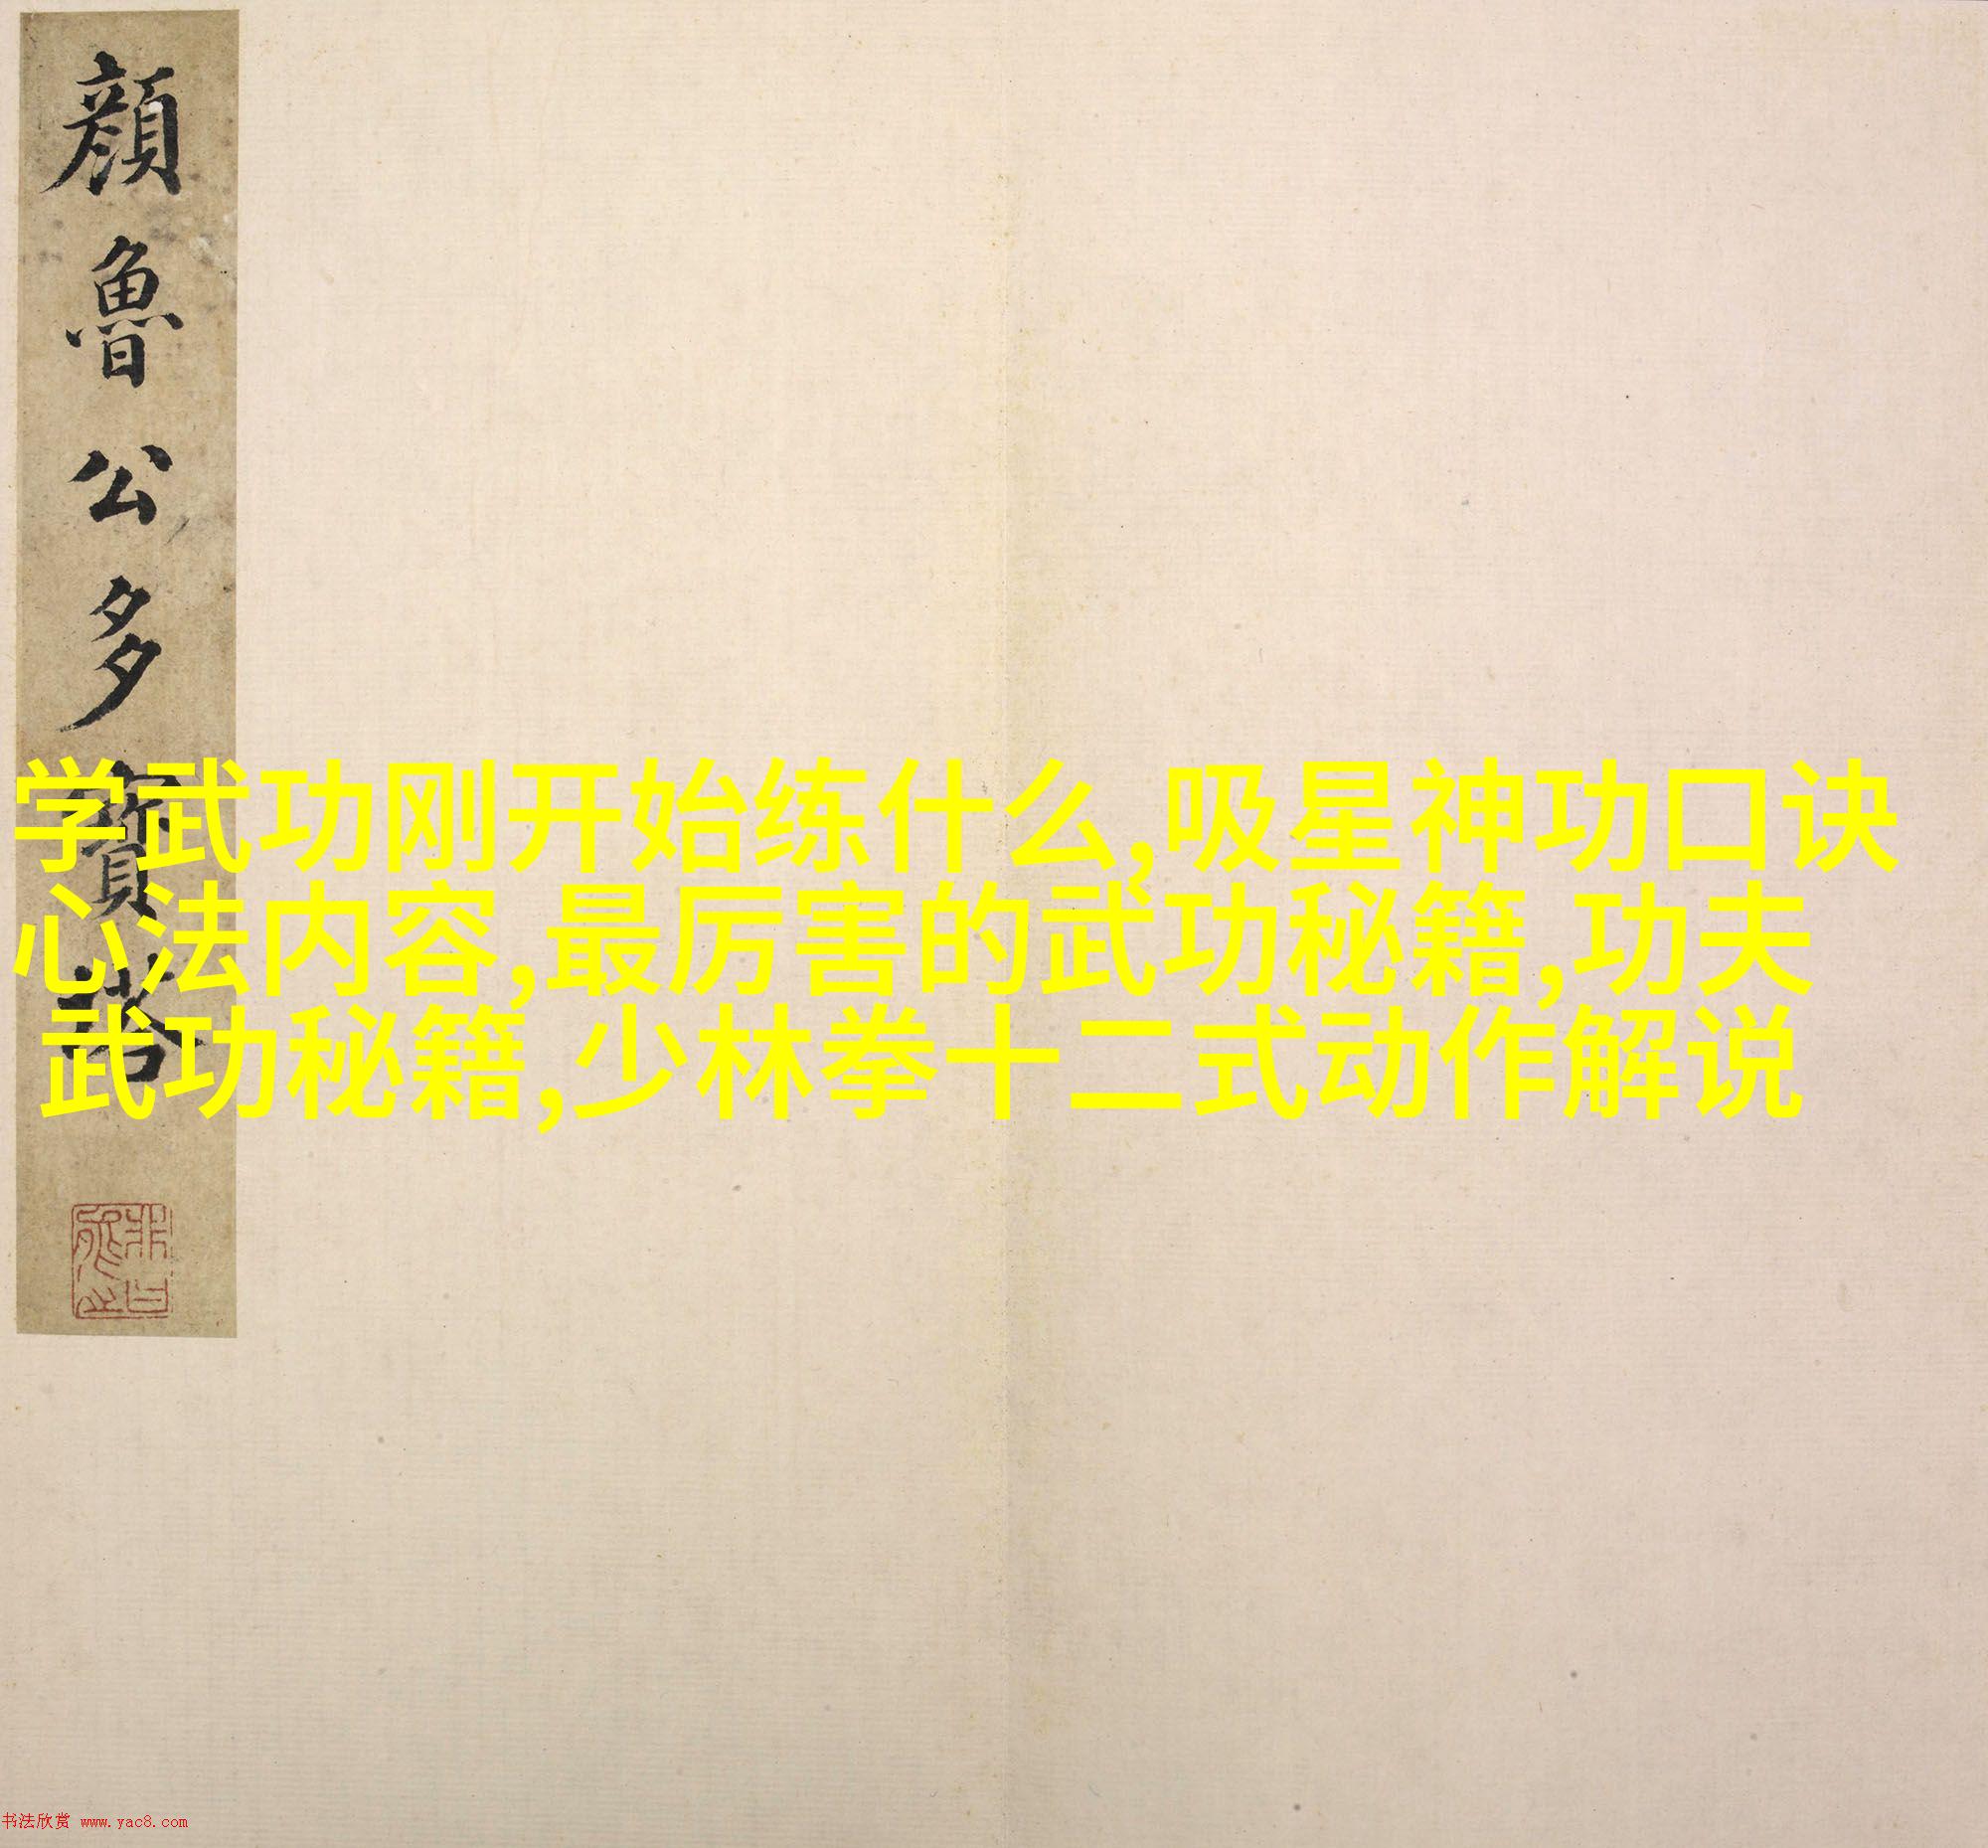 顔魯公多寶塔
学武功刚开始练什么,吸星神功口诀
心法内容,最厉害的武功秘籍,功夫
武功秘籍,少林拳十二式动作解说
书法欣赏 www.yac8.com